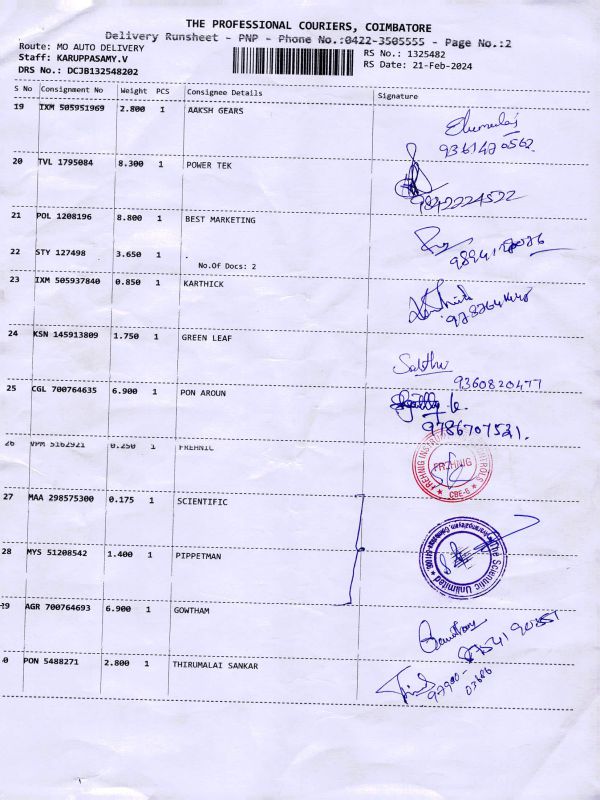 THE PROFESSIONAL COURIERS, COIMBATORE
Delivery Runsheet - PNP - Phone No.:0422-3505555 - Page No.:2
Route: MO AUTO DELIVERY
RS No.: 1325482
Staff: KARUPPASAMY.V
RS Date: 21-Feb-2024
DRS No.: DCJB132548202
S No Consignment No Weight PCS Consignee Details Signature
19 IXM 505951969 2.800 1 AAKSH GEARS
20 TVL 1795084 8.300 1 POWER TEK
9842224522
21 POL 1208196 8.800 1 BEST MARKETING
22 STY 127498 3.650 1 .
No.Of Docs: 2
23 IXM 505937840 0.850 1 KARTHICK
24 KSN 145913809 1.750 1 GREEN LEAF
9360820477
25 CGL 700764635 6.900 1 PON AROUN
9786707531.
26 VPM 5162921 0.250 1 FREHNIC
27 MAA 298575300 0.175 1 SCIENTIFIC
The Scientific Unlimited
28 MYS 51208542 1.400 1 PIPPETMAN
29 AGR 700764693 6.900 1 GOWTHAM
Gowtham
0 PON 5488271 2.800 1 THIRUMALAI SANKAR
97900-
03686